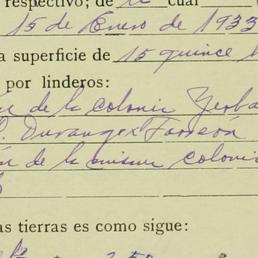 respectivo; de la cual
15 de Enero de 1933
a superficie de 15 quince
por linderos:
de la colonia Yerba
Durango Torreón
de la misma colonia
as tierras es como sigue: